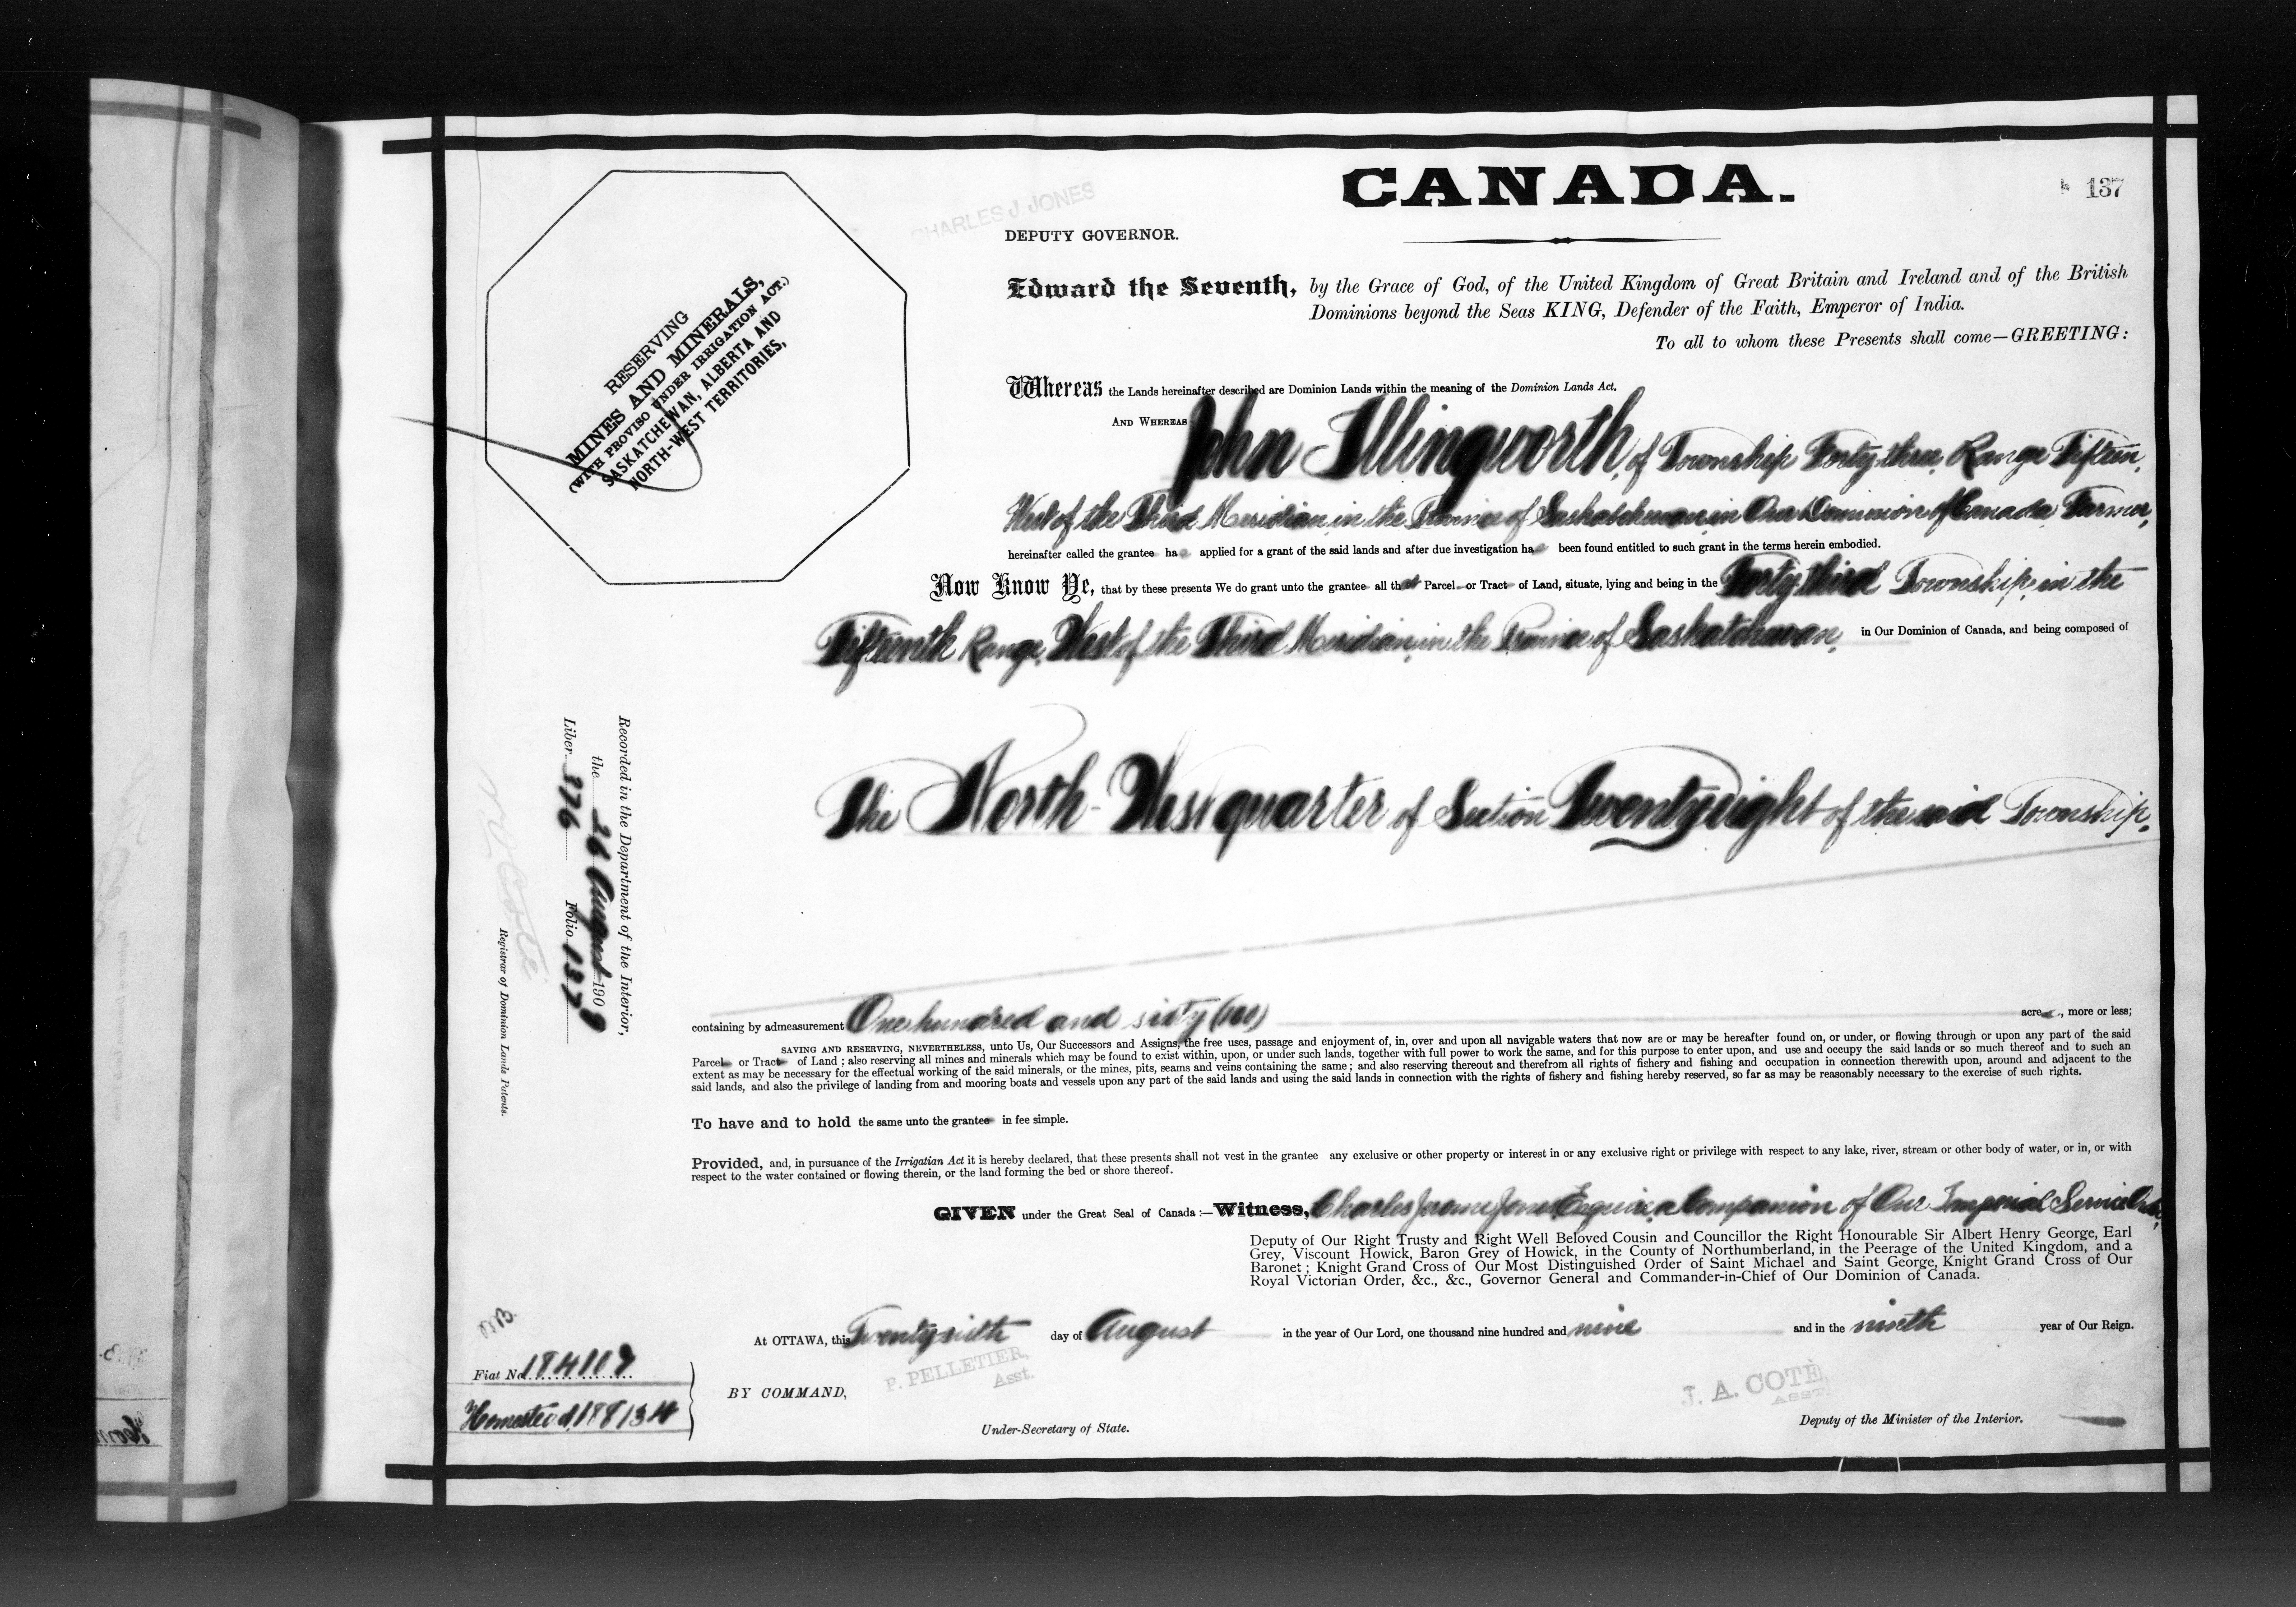 CANADA.
137
CHARLES J. JONES
DEPUTY GOVERNOR.
Edward the Seventh, by the Grace of God, of the United Kingdom of Great Britain and Ireland and of the British
Dominions beyond the Seas KING, Defender of the Faith, Emperor of India.
To all to whom these Presents shall come—GREETING:
RESERVING
MINES AND MINERALS,
(WITH PROVISO UNDER IRRIGATION ACT.)
SASKATCHEWAN, ALBERTA AND
NORTH-WEST TERRITORIES,
Whereas the Lands hereinafter described are Dominion Lands within the meaning of the Dominion Lands Act.
AND WHEREAS John Illingworth, of Township Forty-three, Range Fifteen,
West of the Third Meridian, in the Province of Saskatchewan, in Our Dominion of Canada, Farmer,
hereinafter called the grantee has applied for a grant of the said lands and after due investigation has been found entitled to such grant in the terms herein embodied.
Now Know Ye, that by these presents We do grant unto the grantee all that Parcel or Tract of Land, situate, lying and being in the Forty-third Township, in the
Fifteenth Range, West of the Third Meridian, in the Province of Saskatchewan, in Our Dominion of Canada, and being composed of
The North-West quarter of Section Twenty-eight of the said Township.
Recorded in the Department of the Interior,
the 26 August 1909
Liber 376 Folio 137
N. O. Coté
Registrar of Dominion Lands Patents.
containing by admeasurement One hundred and sixty (160) acres, more or less;
SAVING AND RESERVING, NEVERTHELESS, unto Us, Our Successors and Assigns, the free uses, passage and enjoyment of, in, over and upon all navigable waters that now are or may be hereafter found on, or under, or flowing through or upon any part of the said
Parcel or Tract of Land; also reserving all mines and minerals which may be found to exist within, upon, or under such lands, together with full power to work the same, and for this purpose to enter upon, and use and occupy the said lands or so much thereof and to such an
extent as may be necessary for the effectual working of the said minerals, or the mines, pits, seams and veins containing the same; and also reserving thereout and therefrom all rights of fishery and fishing and occupation in connection therewith upon, around and adjacent to the
said lands, and also the privilege of landing from and mooring boats and vessels upon any part of the said lands and using the said lands in connection with the rights of fishery and fishing hereby reserved, so far as may be reasonably necessary to the exercise of such rights.
To have and to hold the same unto the grantee in fee simple.
Provided, and, in pursuance of the Irrigation Act it is hereby declared, that these presents shall not vest in the grantee any exclusive or other property or interest in or any exclusive right or privilege with respect to any lake, river, stream or other body of water, or in, or with
respect to the water contained or flowing therein, or the land forming the bed or shore thereof.
GIVEN under the Great Seal of Canada:—Witness, Charles Jerome Jones Esquire, a Companion of Our Imperial Service Order,
Deputy of Our Right Trusty and Right Well Beloved Cousin and Councillor the Right Honourable Sir Albert Henry George, Earl
Grey, Viscount Howick, Baron Grey of Howick, in the County of Northumberland, in the Peerage of the United Kingdom, and a
Baronet; Knight Grand Cross of Our Most Distinguished Order of Saint Michael and Saint George, Knight Grand Cross of Our
Royal Victorian Order, &c., &c., Governor General and Commander-in-Chief of Our Dominion of Canada.
At OTTAWA, this Twenty-sixth day of August in the year of Our Lord, one thousand nine hundred and nine and in the ninth year of Our Reign.
Fiat No. 184109
Homestead 188134
BY COMMAND,
P. PELLETIER,
Asst.
Under-Secretary of State.
J. A. COTÉ,
ASST.
Deputy of the Minister of the Interior.